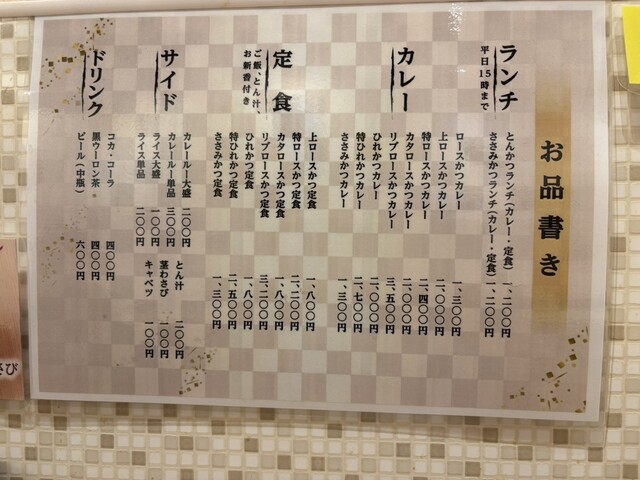 お品書き
ランチ
平日15時まで
とんかつランチ(カレー・定食) 一、二〇〇円
ささみかつランチ(カレー・定食) 一、二〇〇円
カレー
ロースかつカレー 一、三〇〇円
上ロースかつカレー 二、〇〇〇円
特ロースかつカレー 二、四〇〇円
カタロースかつカレー 二、〇〇〇円
リブロースかつカレー 三、五〇〇円
ひれかつカレー 二、〇〇〇円
特ひれかつカレー 二、七〇〇円
ささみかつカレー 一、三〇〇円
定食
ご飯、とん汁、
お新香付き
上ロースかつ定食 一、八〇〇円
特ロースかつ定食 二、二〇〇円
カタロースかつ定食 一、八〇〇円
リブロースかつ定食 三、二〇〇円
ひれかつ定食 一、八〇〇円
特ひれかつ定食 二、五〇〇円
ささみかつ定食 一、三〇〇円
サイド
カレールー大盛 二〇〇円
カレールー単品 三〇〇円
ライス大盛 一〇〇円
ライス単品 二〇〇円
とん汁 二〇〇円
茎わさび 一〇〇円
キャベツ 一〇〇円
ドリンク
コカ・コーラ 四〇〇円
黒ウーロン茶 四〇〇円
ビール(中瓶) 六〇〇円
さび